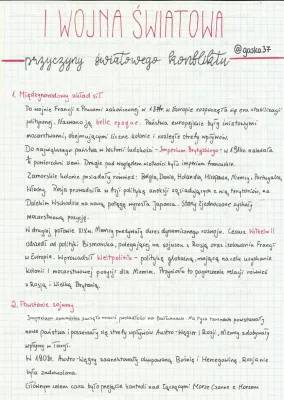 I WOJNA ŚWIATOWA
przyczyny światowego konfliktu @gaska37
1. Międzynarodowy układ sił
Do wojnie Francji z Prusami zakończonej w 1871r. w Europie rozpoczęła się era stabilizacji
politycznej. Nazwano ją belle epoque. Państwa europejskie były światowymi
mocarstwami, obejmującymi liczne kolonie i rozległe strefy wpływów.
Do największego państwa w historii ludzkości - Imperium Brytyjskiego - w 1914r. należała
¼ powierzchni ziemi. Drugie pod względem wielkości było imperium francuskie.
Zamorskie kolonie posiadały również: Belgia, Dania, Holandia, Hiszpania, Niemcy, Portugalia,
Włochy. Rosja prowadziła w Azji politykę aneksji sąsiadujących z nią terytoriów, na
Dalekim Wschodzie na nową potęgę wyrosła Japonia. Stany Zjednoczone zyskały
mocarstwową pozycję.
W drugiej połowie XIXw. Niemcy przeżywały okres dynamicznego rozwoju. Cesarz Wilhelm II
odszedł od polityki Bismarcka, polegającej na sojuszu z Rosją oraz izolowaniu Francji
w Europie. Wprowadził Weltpolitik - politykę globalną, mającą na celu uzyskanie
kolonii i mocarstwowej pozycji dla Niemiec. Przyniosło to pogorszenie relacji również
z Rosją i Wielką Brytanią.
2. Powstanie sojuszy
Imperium osmańskie zaczęło tracić posiadłości na Bałkanach. Na tych terenach powstawały
nowe państwa i poszerzały się strefy wpływów Austro-Węgier i Rosji, Niemcy zdobywały
wpływy w Turcji.
W 1908r. Austro-Węgry zaanektowały okupowaną Bośnię i Hercegowinę. Rosja nie
była zadowolona.
Głównym celem cara było przejęcie kontroli nad łączącymi Morze Czarne z Morzem